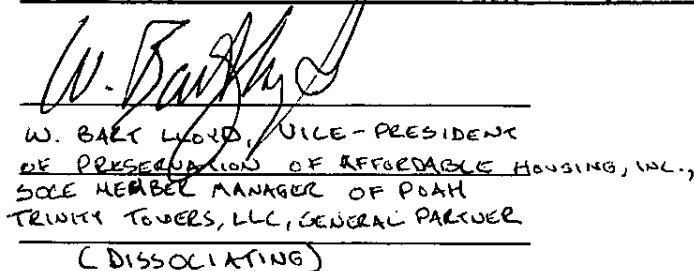 W. Bart Lloyd
W. BART LLOYD, VICE-PRESIDENT
OF PRESERVATION OF AFFORDABLE HOUSING, INC.,
SOLE MEMBER MANAGER OF POAH
TRINITY TOWERS, LLC, GENERAL PARTNER
(DISSOCIATING)